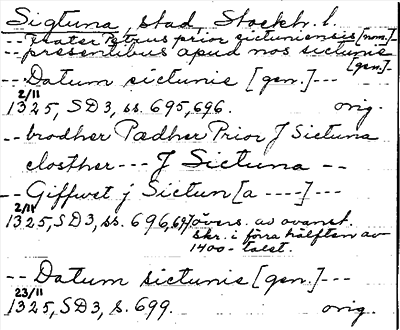 Sigtuna, stad, Stockh. l.
-- frater Petrus prior sictuniensis [nom.] --
-- presentibus apud nos sictunie [gen.] --
-- Datum sictunie [gen.] ---
2/11
1325, SD3, ss. 695, 696. orig.
-- brodher Pædher Prior J Sictuna
closther --- J Sictuna --
-- Giffwet j Sictun [a ----] ---
2/11
1325, SD3, ss. 696, 697, övers. av ovanst.
skr. i förra hälften av
1400-talet.
-- Datum sictunie [gen.] ---
23/11
1325, SD3, s. 699. orig.